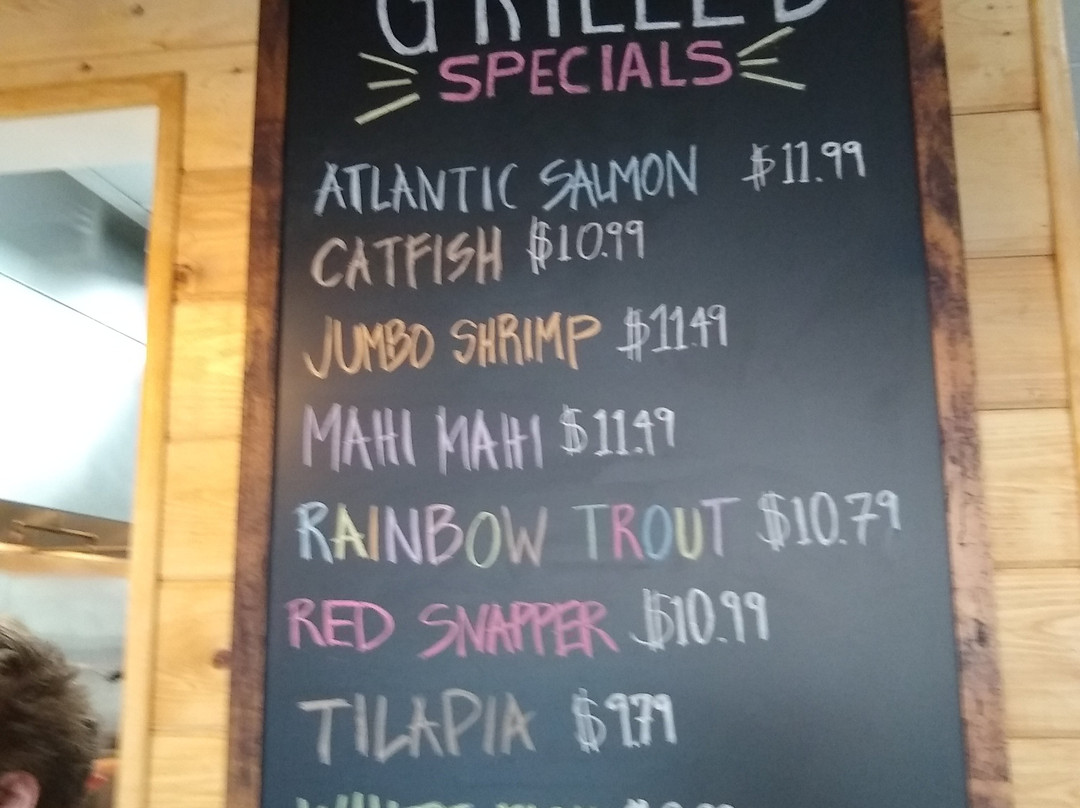 GRILLED
SPECIALS
ATLANTIC SALMON $11.99
CATFISH $10.99
JUMBO SHRIMP $11.49
MAHI MAHI $11.49
RAINBOW TROUT $10.79
RED SNAPPER $10.99
TILAPIA $9.79